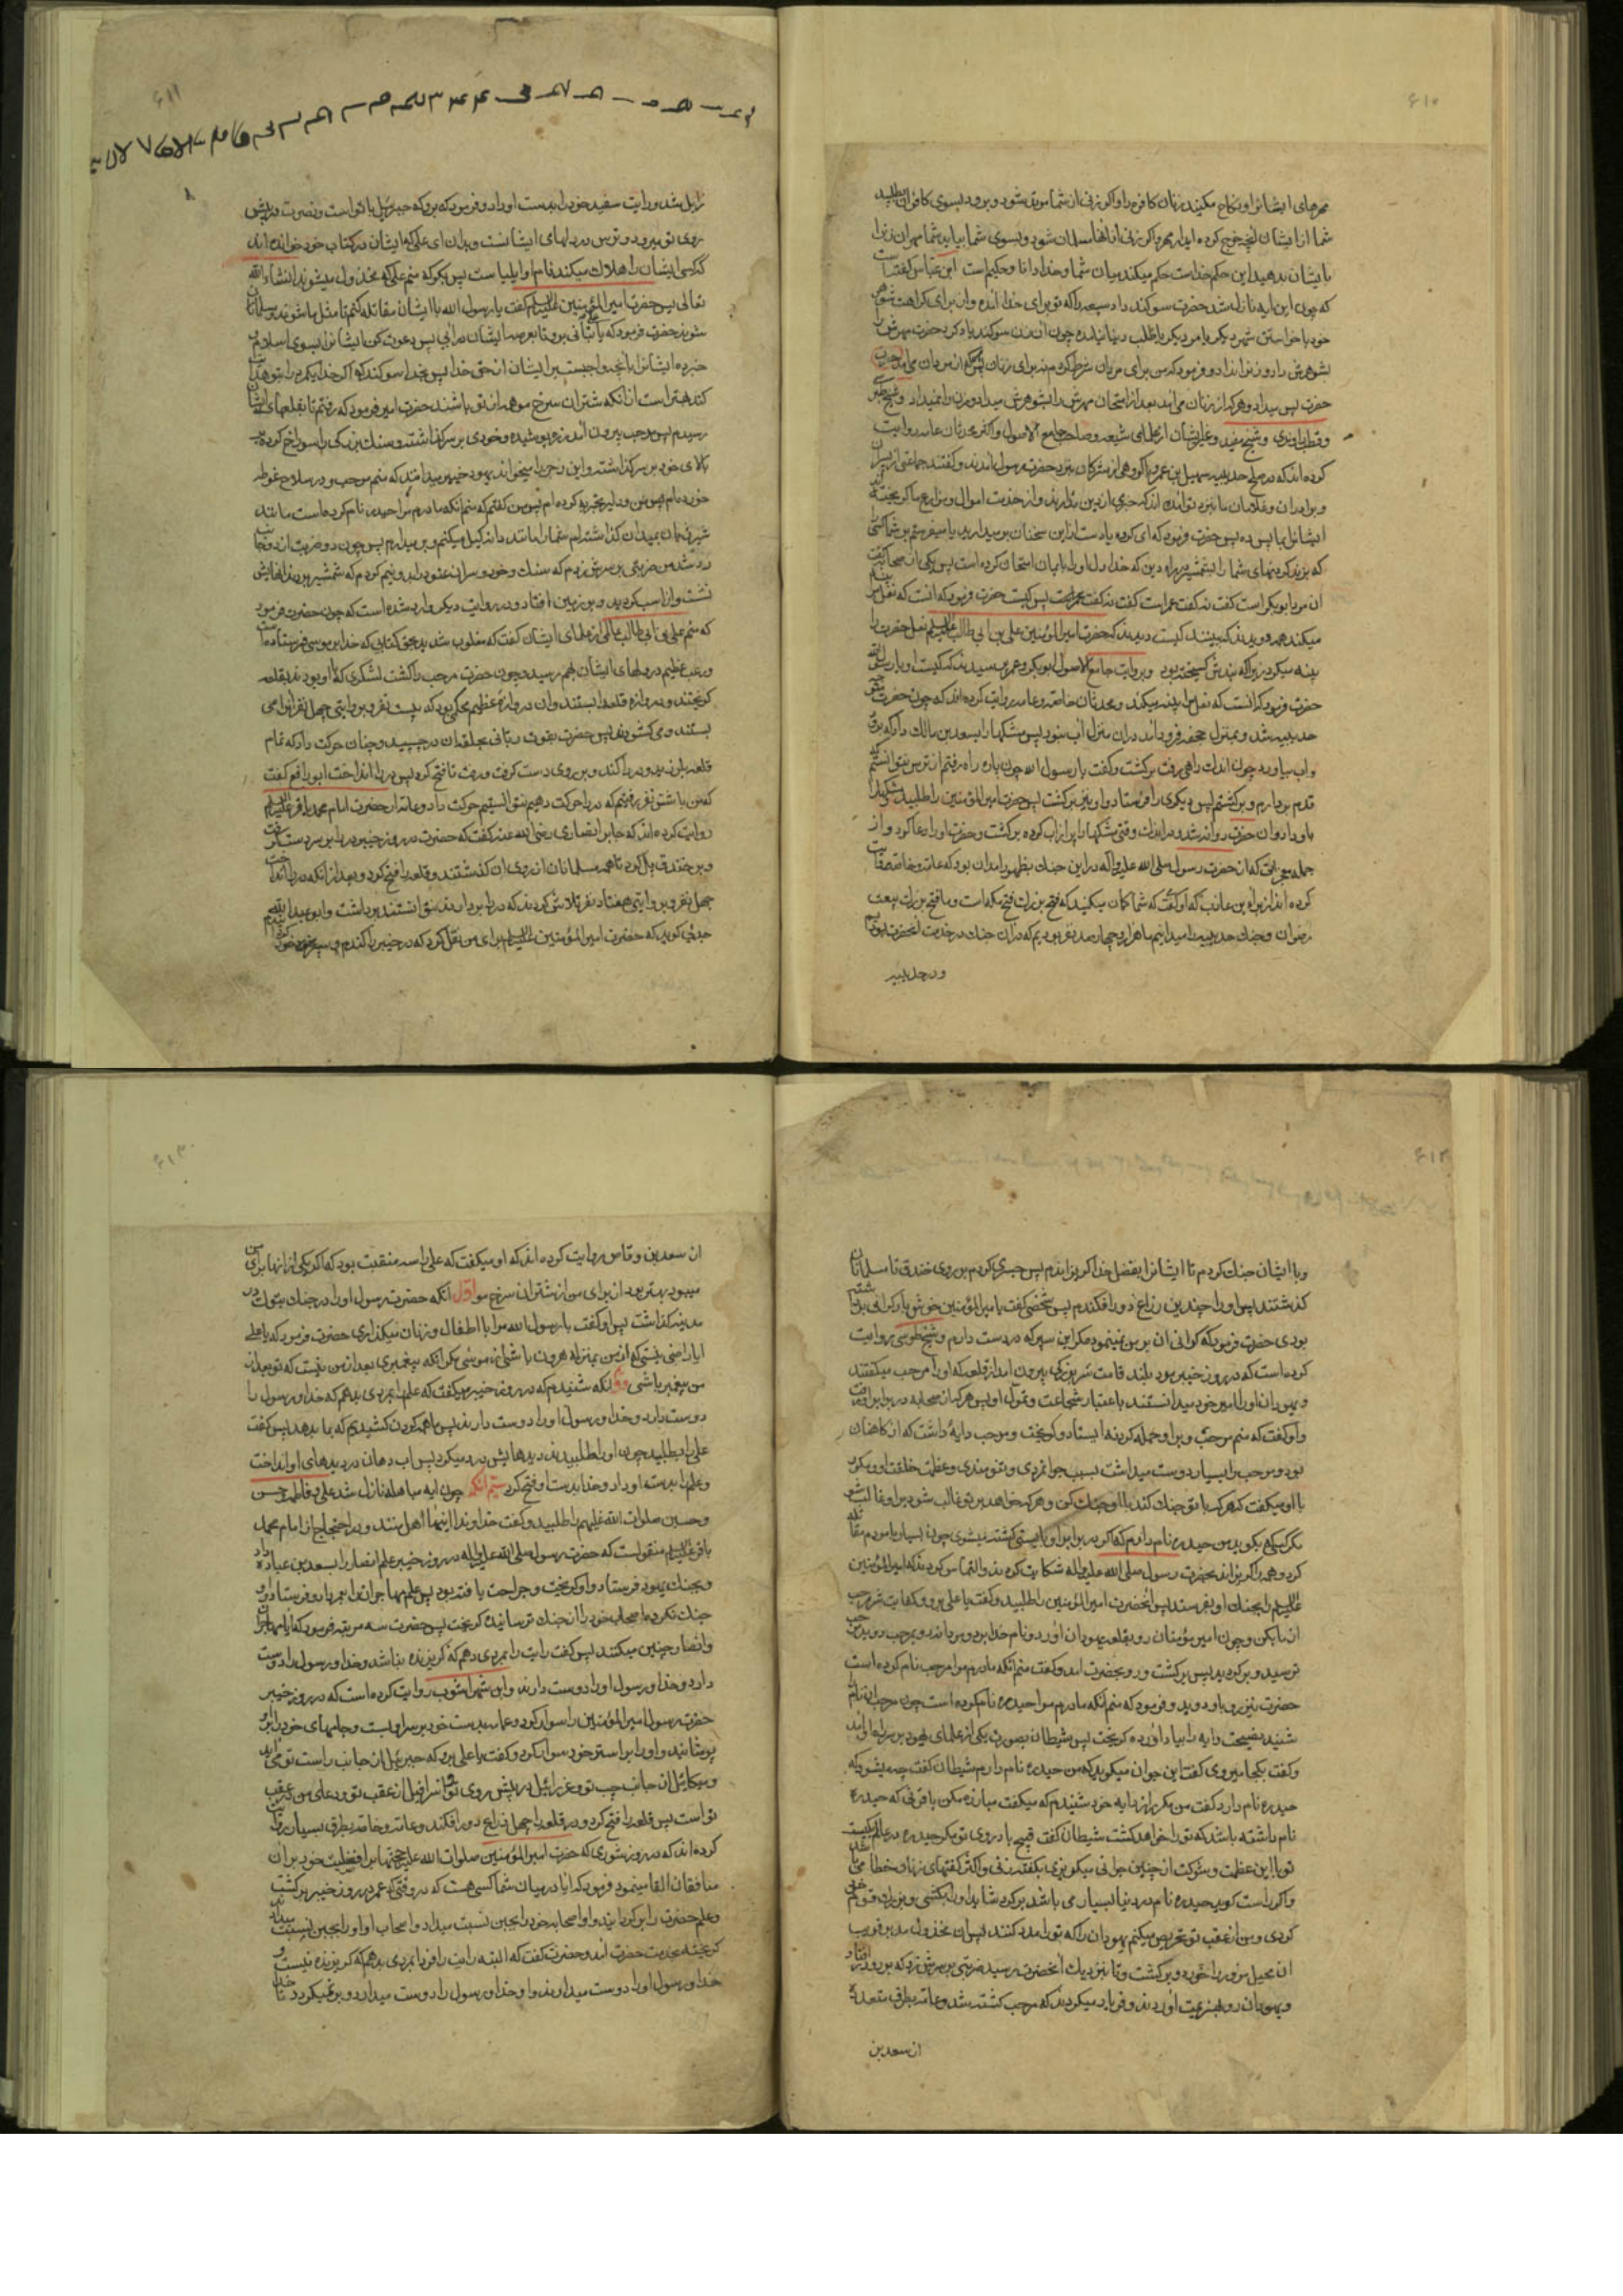 ۶۱۰
مهرهای ایشانرا و نکاح مکنید زنان کافره را و اگر زنی از شما مرتد شود و برود بسوی کافران بطلبید
شما از ایشان آنچه خرج کرده‌اید از مهر و اگر زنی از آنها مسلمان شود و بسوی شما بیاید شما مهر آن زنرا
بایشان بدهید این حکم خداست حکم میکند میان شما و خدا دانا و حکیم است ابن عباس گفته است
که چون این آیه نازل شد حضرت سوگند داد سبیعه را که تو برای خدا آمده و از برای کراهت شوهر
خود یا خواستن شهر دیگر یا مرد دیگر یا طلب دنیا نیامده چون آن زن سوگند یاد کرد حضرت مهرش را
بشوهرش داد و زنرا نداد و فرمود که من برای مردان شرط کردم نه برای زنان پس هرکه از مردان می آمد نزد
حضرت پس میداد و هرکه از زنان می آمد بعد از امتحان مهرش را بشوهرش میداد و زنرا نمیداد و شیخ طبرسی
و قطب راوندی و شیخ مفید و غیر ایشان از علمای شیعه و صاحب جامع الاصول و اکثر محدثان عامه روایت
کرده‌اند که در صلح حدیبیه سهیل بن عمرو با گروهی از مشرکان نزد حضرت رسول آمدند و گفتند جماعتی از پسران
و برادران و غلامان ما نزد تو آمده‌اند که خبری از دین ندارند و از خدمت اموال و مزارع ما گریخته‌اند
ایشانرا بما پس ده پس حضرت فرمود که ای گروه یا دست از این سخنان بر میدارید یا میفرستم بر شما کسی
که بزند گردنهای شما را بشمشیر در راه دین که خدا دل او را بایمان امتحان کرده است پس یکی از صحابه گفت
آن مرد ابوبکر است گفت نه گفت عمر است گفت نه گفت پس کیست حضرت فرمود که آنست که نعل مرا پینه
میکند همه دویدند که ببینند کیست دیدند که حضرت امیرالمؤمنین علی بن ابی طالب علیه السلام نعل حضرت را
پینه میکرد زیرا که بندش گسیخته بود و بروایت جامع الاصول ابوبکر و عمر پرسیدند که کیست او یا رسول الله
حضرت فرمود که آنست که نعل مرا پینه میکند و محدثان خاصه و عامه روایت کرده‌اند که چون حضرت متوجه
حدیبیه شد و بمنزل جحفه فرود آمد در آن منزل آب نبود پس مشکها را بسعد بن مالک داد که برود
و آب بیاورد چون اندک راهی رفت برگشت و گفت یا رسول الله چون پاره راه رفتم از ترس نتوانستم که
قدم بردارم و برگشتم پس دیگری را فرستاد و او نیز برگشت پس حضرت امیرالمؤمنین را طلبید و مشکها را
باو داد و آن حضرت روانه شد و در اندک وقتی مشکها را پر از آب کرده برگشت و حضرت او را دعا کرد و از
جمله معجزاتی که از حضرت رسول صلی الله علیه و آله در این جنک بظهور آمد آن بود که عامه و خاصه روایت
کرده‌اند از براء بن عازب که او گفت که شما گمان میکنید که فتح بزرک فتح مکه است و ما فتح بزرک بیعت
رضوان و جنک حدیبیه را میدانیم ما هزار و چهارصد نفر بودیم که در آن جنک در خدمت آنحضرت بودیم
و در حدیبیه
۶۱۱
زایل شد و رایت سفید خود را بدست او داد و فرمود که برو که جبرئیل با تو است و نصرت در پیش
روی تو میرود و ترس در دلهای ایشانست و بدان ای علی که ایشان در کتاب خود خوانده‌اند
که کسی ایشان را هلاک میکند نام او ایلیا است پس بگو که منم علی که مخذول میشوند انشاء الله
تعالی پس حضرت امیرالمؤمنین علیه السلام گفت یا رسول الله با ایشان مقاتله کنم تا مثل ما شوند و مسلمان
شوند حضرت فرمود که بتأنی برو تا بعرصه ایشان درآیی پس دعوت کن ایشانرا بسوی اسلام و
خبر ده ایشانرا بآنچه واجبست بر ایشان از حق خدا پس بخدا سوگند که اگر خدا یکمرد را بتو هدایت
کند بهتر است از آنکه شتران سرخ مو همه از تو باشند حضرت امیر فرمود که رفتم تا بقلعهای ایشان
رسیدم پس مرحب بیرون آمد زره پوشیده و خودی بر سر گذاشته و سنک بزرگی را سوراخ کرده
بالای خود بر سر گذاشته و این رجز را میخواند یهود خیبر میدانند که منم مرحب و در سلاح غوطه
خورده‌ام پس من گفتم که منم آنکه مادرم مرا حیدر نام کرده است مانند
شیر ژیان بمیدان
رد شد من ضربتی بر سرش زدم که سنک و خود و سر آن عنود را بدو نیم کردم که شمشیر بر دندانهایش
نشست و از اسب گردید و بر زمین افتاد و در روایت دیگر وارد شده است که چون حضرت فرمود
که منم علی بن ابی طالب عالمی از علمای ایشان گفت که مغلوب شدید بحق کتابی که خدا بر موسی فرستاده است
و رعب عظیم در دلهای ایشان بهم رسید و چون حضرت مرحب را کشت لشکری که با او بودند بقلعه
گریختند و دروازه قلعه را بستند و آن دروازه عظیم محکمی بود که بیست نفر و بروایتی چهل نفر آنرا می
بستند و می گشودند پس حضرت بقوت ربانی بحلقه آن در چسپید و چنان حرکت داد که تمام
قلعه بلرزید و در را کند و بر روی دست گرفت و رفت تا فتح کرد پس در را انداخت ابو رافع گفت
که من با شش نفر رفتیم که در را حرکت دهیم نتوانستیم حرکت داد و عامه از حضرت امام محمد باقر علیه السلام
روایت کرده‌اند که جابر انصاری رضی الله عنه گفت که حضرت در روز خیبر در را بر سر دست گرفت
و بر خندق پل کرد تا همه مسلمانان از روی آن گذشتند و قلعه را فتح کرد و بعد از آنکه در را انداخت
چهل نفر و بروایتی هفتاد نفر تلاش کردند که در را بردارند نتوانستند برداشت و ابو عبدالله
جدلی گوید که حضرت امیرالمؤمنین علیه السلام برای من نقل کرد که در خیبر را کندم و سپر خود کردم
۶۱۲
و با ایشان جنک کردم تا ایشانرا بفضل خدا گریزاندم پس جسری کردم بر روی خندق تا مسلمانان
گذشتند پس او را چندین زراع دور افکندم پس شخصی گفت یا امیرالمؤمنین خوش بار گرانی برداشته
بودی حضرت فرمود که گرانی آن بر من نمینمود مگر این سپر که در دست دارم و شیخ طوسی روایت
کرده است که در روز خیبر یهودی بلند قامت سر بزرگی بیرون آمد از قلعه که او را مرحب میگفتند
و یهودان او را امیر خود میدانستند باعتبار شجاعت و تمول او پس هرکه از صحابه در برابر او میرفت
و او گفت که منم مرحب و بر او حمله کرد نمی ایستاد و گریخت و مرحب دایهٔ داشت که از کاهنان
بود و مرحب را بسیار دوست میداشت بسبب جوانمردی و تنومندی و عظمت خلقت او و مکرر
باو میگفت که هرکه با تو جنک کند با او جنک کن و هرکه خواهد بر تو غالب شود بر او غالب شو
مگر کسی که بگوید من حیدره نام دارم که اگر در برابر او بایستی کشته میشوی چون بسیار با مردم مقاتله
کرد و همه را گریزاند بحضرت رسول صلی الله علیه و آله شکایت کردند و التماس کردند که امیرالمؤمنین
علیه السلام را بجنک او بفرستد پس آنحضرت امیرالمؤمنین را طلبید و گفت یا علی برو و کفایت شر مرحب
از ما بکن و چون امیر مؤمنان رو بقلعه یهودان آورد و نام خدا بر دوست میراند و مرحب دوید و چون
ترسید و برگردید پس برگشت و رو بحضرت آمد و گفت منم آنکه مادرم مرا مرحب نام کرده است
حضرت نیز رو باو دوید و فرمود که منم آنکه مادرم مرا حیدره نام کرده است چون مرحب این نام
شنید نصیحت دایه را بیاد آورده گریخت پس شیطان بصورت یکی از علمای یهود بر سر راه او آمد
و گفت بکجا میروی گفت این جوان میگوید که من حیدره نام دارم شیطان گفت چه میشود که
حیدره نام دارد گفت من مکرر از دایه خود شنیدم که میگفت مبارزه مکن با قرنی که حیدره
نام داشته باشد که تو را خواهد کشت شیطان گفت قبیح باد روی تو مگر حیدره در عالم یکیست
تو با این عظمت و شوکت از چنین جوانی میگریزی بگفته زنی و اکثر گفتهای زنان خطا می باشد
و اگر راست گوید حیدره نام در دنیا بسیار می باشد برگرد شاید او را بکشی و بزرک قوم خود
گردی و من از عقب تو تحریص میکنم یهودان را که تو را مدد کنند پس آن مخذول مدبر فریب
آن محیل مزور را خورد و برگشت و تا نزدیک آنحضرت رسید ضربتی بر سرش زد که بر رو افتاد
و یهودان رو بهزیمت آوردند و فریاد میکردند که مرحب کشته شد و عامه بطرق متعدده
از سعد بن
۶۱۳
از سعد بن وقاص روایت کرده‌اند که او میگفت که علی را سه منقبت بود که اگر یکی از آنها برای من
میبود بهتر بود از برای من از شتران سرخ مو اول آنکه حضرت رسول او را در جنک تبوک در
مدینه گذاشت پس او گفت یا رسول الله مرا با اطفال و زنان میگذاری حضرت فرمود که یا علی
آیا راضی نیستی که از من بمنزله هرون باشی از موسی مگر آنکه پیغمبری بعد از من نیست که تو بعد از
من پیغمبر باشی دوم آنکه شنیدم که در روز خیبر میگفت که علم را بمردی بدهم که خدا و رسول را
دوست دارد و خدا و رسول او را دوست دارند پس ما همه گردن کشیدیم که بما بدهد پس گفت
علی را بطلبید چون او را طلبیدند دیدهایش درد میکرد پس آب دهان در دیدهای او انداخت
و علم را بدست او داد و خدا بدست او فتح کرد سیم آنکه چون آیه مباهله نازل شد علی و فاطمه و حسن
و حسین صلوات الله علیهم را طلبید و گفت خداوندا اینها اهل منند و در احتجاج از امام محمد
باقر علیه السلام منقولست که حضرت رسول صلی الله علیه و آله در روز خیبر علم انصار را بسعد بن عباده داد
و بجنک یهود فرستاد و او گریخت و جراحت یافته بود پس علم مهاجران را بعمر داد و فرستاد و او
جنک نکرده اصحاب خود را از جنک ترسانید و گریخت پس حضرت سه مرتبه فرمود که آیا مهاجران
و انصار چنین میکنند پس گفت رایت را بمردی دهم که گریزنده نباشد و خدا و رسول را دوست
دارد و خدا و رسول او را دوست دارند و ابن شهرآشوب روایت کرده است که در روز خیبر
حضرت رسول امیرالمؤمنین را سوار کرد و عمامه بدست خود بر سر او بست و جامهای خود را بر او
پوشانید و او را بر استر خود سوار کرد و گفت یا علی برو که جبرئیل از جانب راست تو می آید
و میکائیل از جانب چپ تو و عزرائیل در پیش روی تو و اسرافیل از عقب تو و دعای من در عقب
تو است پس قلعه را فتح کرد و در قلعه را چهل ذراع دور افکند و عامه و خاصه بطرق بسیار روایت
کرده‌اند که در روز شوری که حضرت امیرالمؤمنین صلوات الله علیه حجتها بر افضلیت خود بر آن
منافقان القا مینمود فرمود که آیا در میان شما کسی هست که در وقتی که عمر در روز خیبر برگشت
و علم حضرت را برگردانید و او اصحاب خود را بجبن نسبت میداد و اصحاب او او را بجبن نسبت میدادند
گریخته بخدمت حضرت آمد و حضرت گفت که البته رایت را فردا بمردی بدهم که گریزنده نیست و
خدا و رسول او را دوست میدارند و او خدا و رسول را دوست میدارد و بر نمیگردد تا